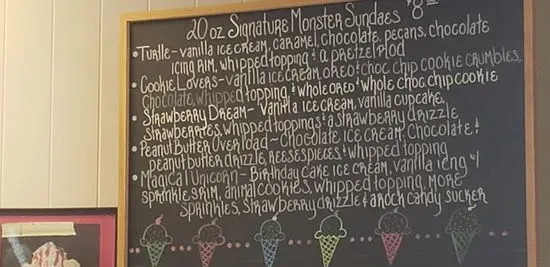 20 oz Signature Monster Sundaes $8
• Turtle - vanilla ice cream, caramel, chocolate, pecans, chocolate
icing rim, whipped topping & a pretzel rod
• Cookie Lovers - vanilla ice cream, oreo & choc chip cookie crumbles,
chocolate, whipped topping, & whole oreo & whole choc chip cookie
• Strawberry Dream - Vanilla ice cream, vanilla cupcake,
strawberries, whipped toppings & a strawberry drizzle
• Peanut Butter Overload - Chocolate ice cream, Chocolate &
peanut butter drizzle, reeses pieces & whipped topping
• Magical Unicorn - Birthday cake ice cream, vanilla icing w/
sprinkles rim, animal cookies, whipped topping, more
sprinkles, strawberry drizzle & a rock candy sucker